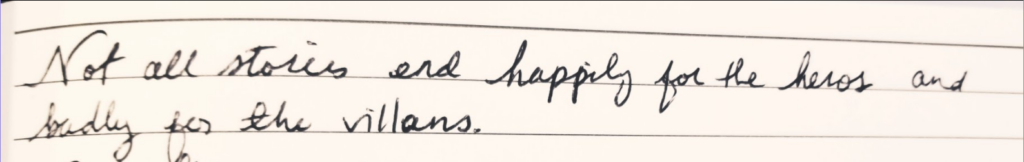 Not all stories end happily for the heros and
badly for the villans.